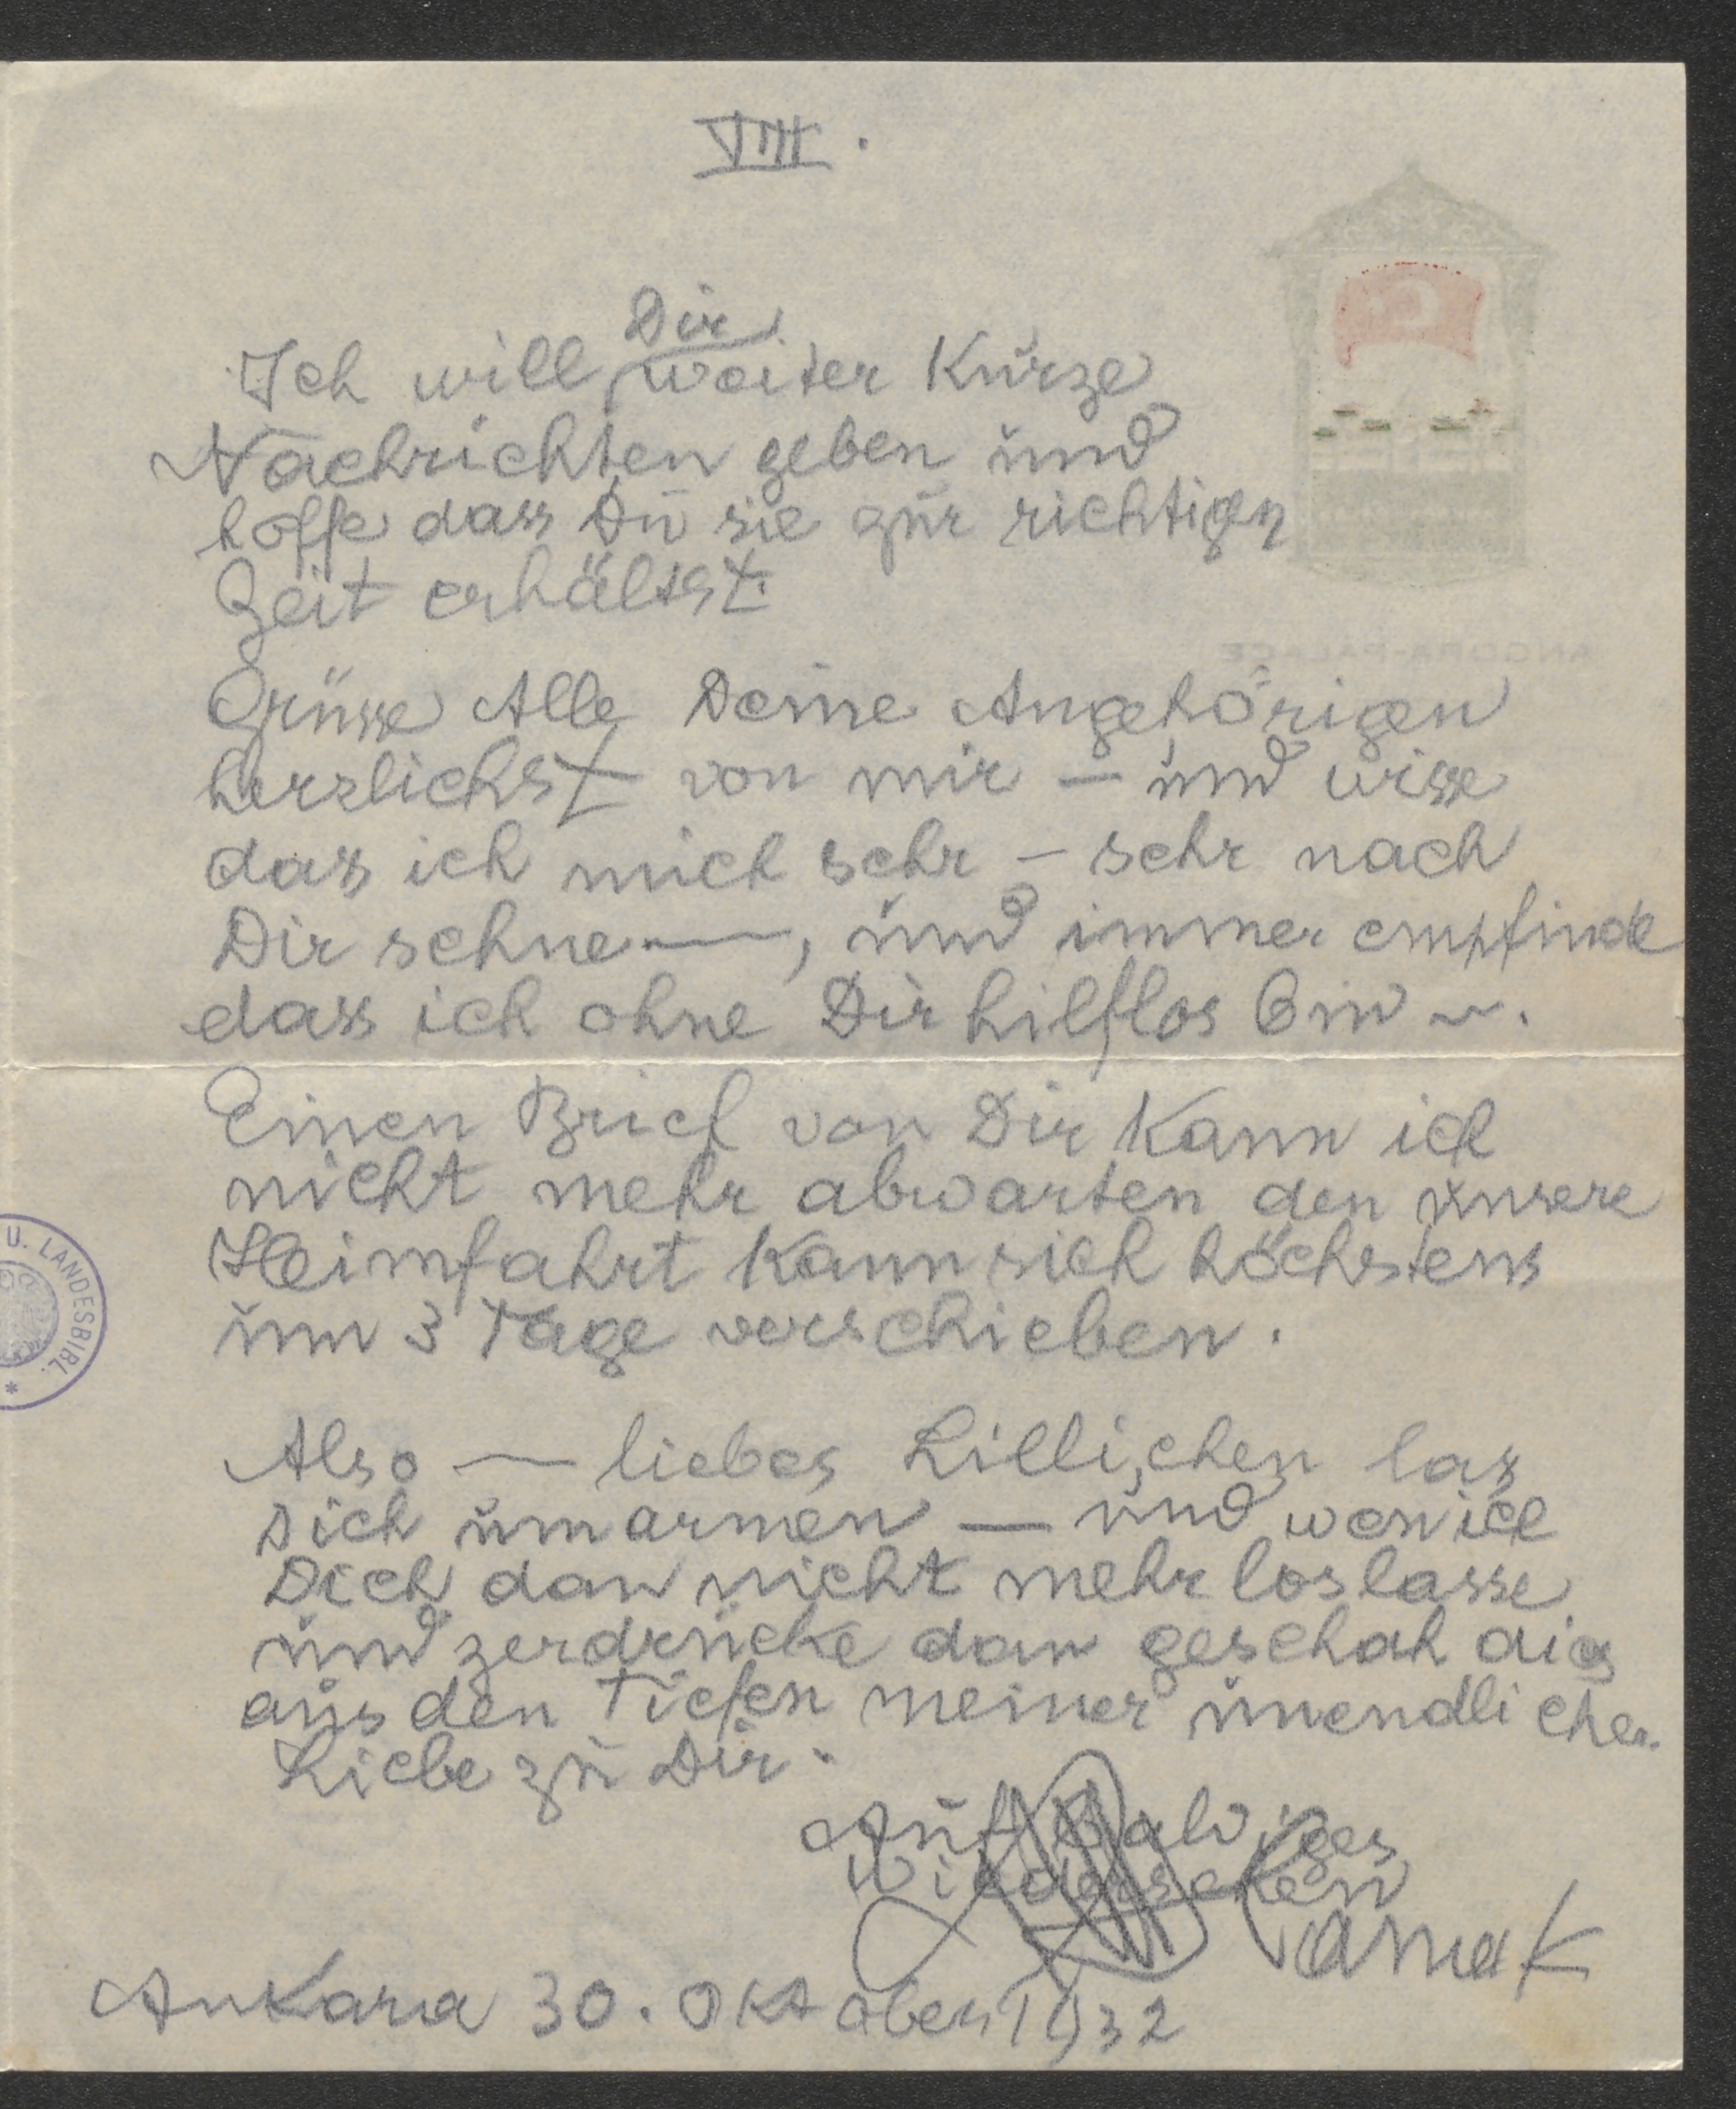 VIII.
Dir
Ich will weiter Kurze
Nachrichten geben und
hoffe dass Du sie zur richtigen
Zeit erhältst.
ANGORA-PALACE
Grüsse Alle Deine Angehörigen
herzlichst von mir — und wisse
dass ich mich sehr – sehr nach
Dir sehne —, und immer empfinde
dass ich ohne Dir hilflos bin ~.
Einen Brief von Dir Kann ich
nicht mehr abwarten den unsere
Heimfahrt Kann sich höchstens
um 3 Tage verschieben.
U. LANDESBIBL. *
Also — liebes Lillichen lass
Dich umarmen — und wen ich
Dich dan nicht mehr loslasse
und zerdrücke dan geschah dies
aus den Tiefen meiner unendlicher
Liebe zu Dir.
Auf Baldiges
Wiedersehen
Ankara 30. Oktober 1932